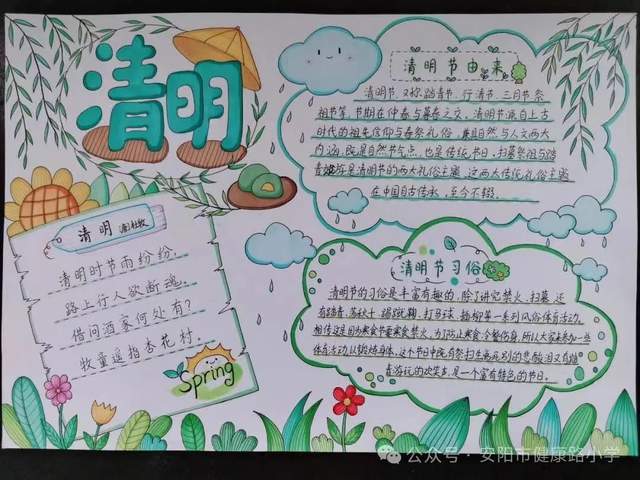 清明
清明节由来
清明节,又称踏青节、行清节、三月节、祭
祖节等,节期在仲春与暮春之交。清明节源自上古
时代的祖先信仰与春祭礼俗,兼具自然与人文两大
内涵,既是自然节气点,也是传统节日,扫墓祭祖与踏
青郊游是清明节的两大礼俗主题,这两大传统礼俗主题
在中国自古传承,至今不辍。
清明
清明时节雨纷纷,
路上行人欲断魂。
借问酒家何处有?
牧童遥指杏花村。
Spring
清明节习俗
清明节的习俗是丰富有趣的,除了讲究禁火、扫墓,还
有踏青、荡秋千、蹴鞠、打马球、插柳等一系列风俗体育活动。
相传这是因为寒食节要寒食禁火,为了防止寒食冷餐伤身,所以大家来参加一些
体育活动,以锻炼身体。这个节日中既有祭扫生离死别的悲酸泪,又有踏
青游玩的欢笑声,是一个富有特色的节日。
公众号·安阳市健康路小学